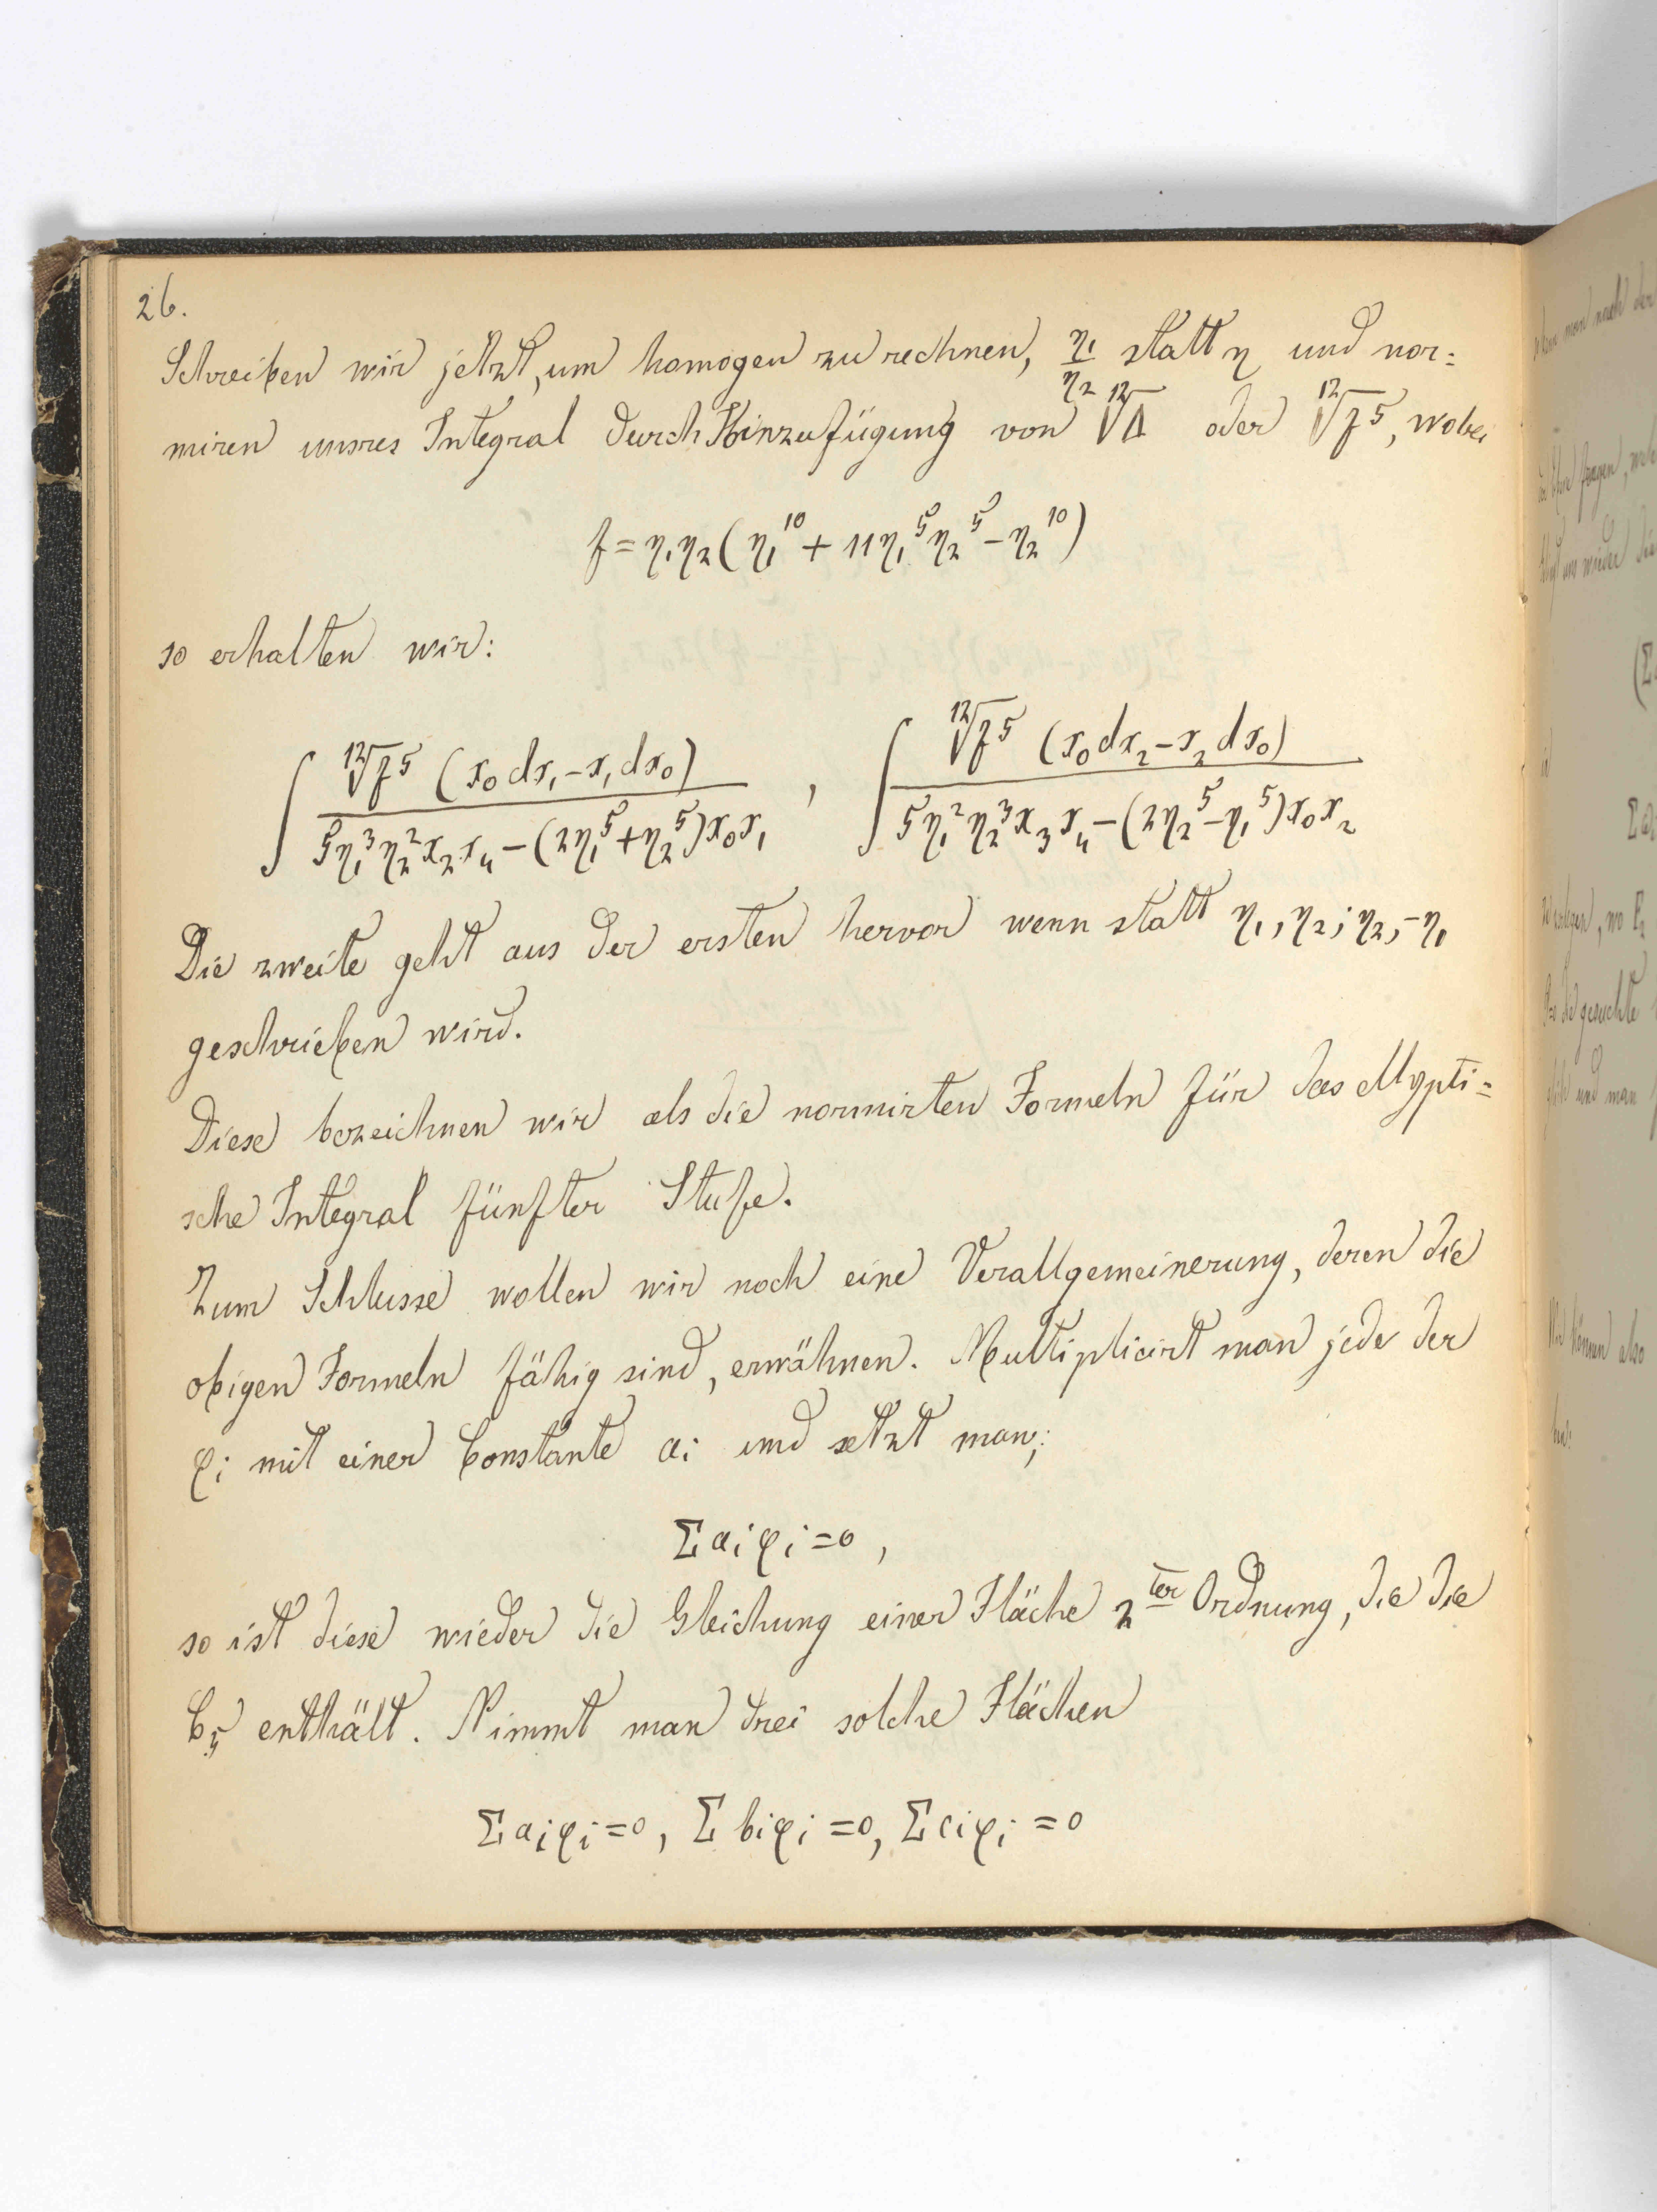 26.
Schreiben wir jetzt, um homogen zu rechnen, η₁/η₂ statt η und nor=
miren unsres Integral durch Hinzufügung von ¹²√Δ oder ¹²√f⁵, wobei
f = η₁η₂(η₁¹⁰ + 11η₁⁵η₂⁵ − η₂¹⁰)
so erhalten wir:
∫ ¹²√f⁵ (x₀dx₁ − x₁dx₀) / (5η₁³η₂²x₂x₄ − (2η₁⁵ + η₂⁵)x₀x₁) , ∫ ¹²√f⁵ (x₀dx₂ − x₂dx₀) / (5η₁²η₂³x₃x₄ − (2η₂⁵ − η₁⁵)x₀x₂)
Die zweite geht aus der ersten hervor wenn statt η₁, η₂; η₂, −η₁
geschrieben wird.
Diese bezeichnen wir als die normirten Formeln für das ellypti=
sche Integral fünfter Stufe.
Zum Schlusse wollen wir noch eine Verallgemeinerung, deren die
obigen Formeln fähig sind, erwähnen. Multiplicirt man jede der
φᵢ mit einer Constante aᵢ und setzt man:
Σaᵢφᵢ = 0 ,
so ist diese wieder die Gleichung einer Fläche 2ter Ordnung, die die
C₅ enthält. Nimmt man drei solche Flächen
Σaᵢφᵢ = 0, Σbᵢφᵢ = 0, Σcᵢφᵢ = 0